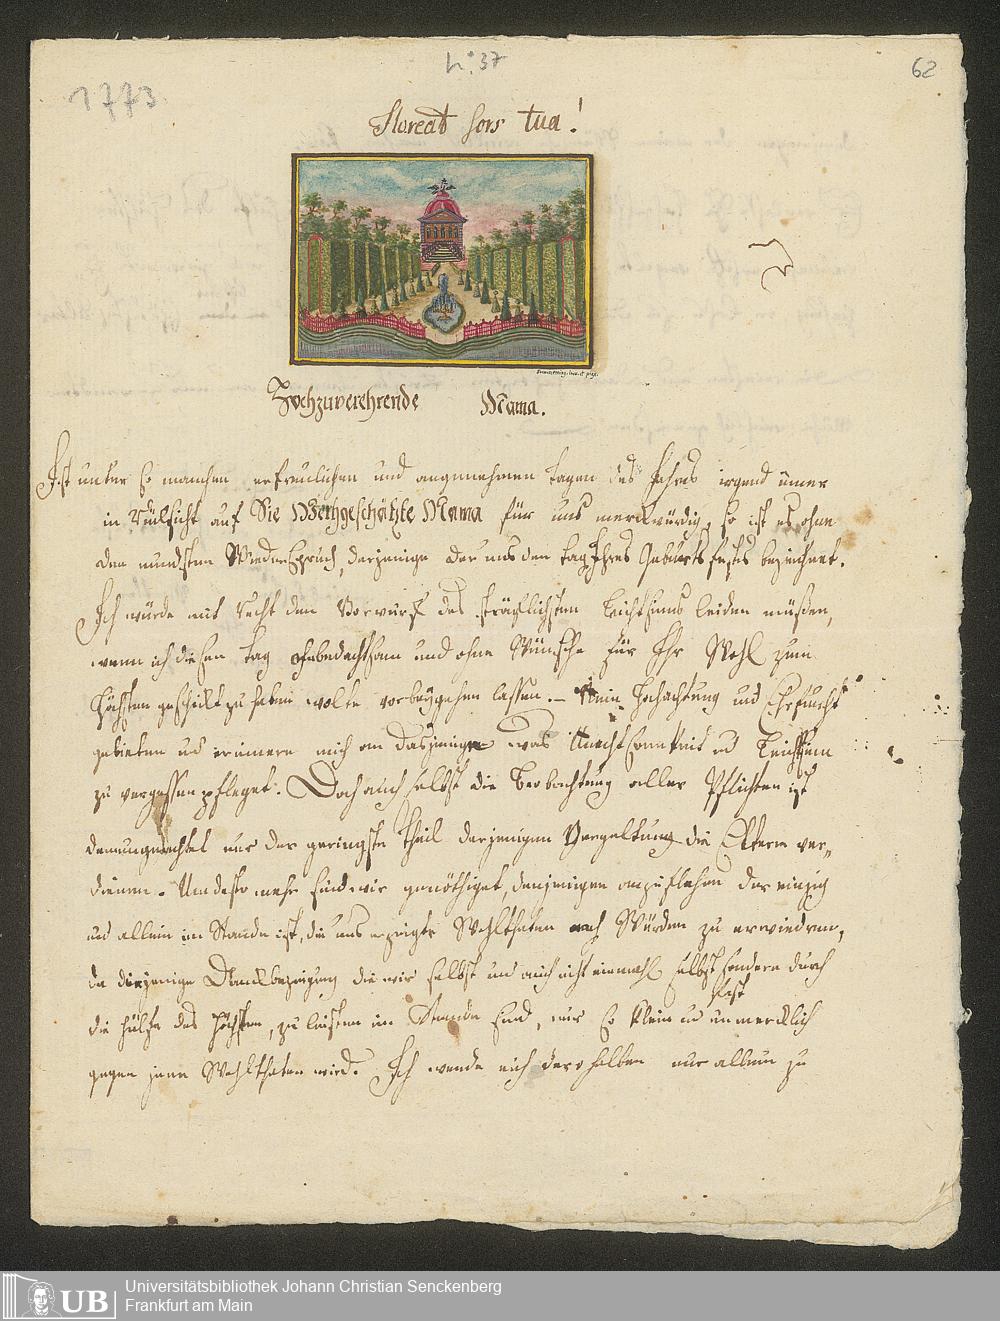 No: 37
62
1773
Floreat sors tua!
Soemmerring. inv. et pinx.
Hochzuverehrende Mama.
Ist unter so manchen erfreulichen und angenehmen Tagen des Jahres irgend einer
in Rücksicht auf Sie Werthgeschätzte Mama für uns merckwürdig, so ist es ohne
den mindsten WiederSpruch, derjenige der uns den Tag Ihres Geburtsfests bezeichnet.
Ich würde mit Recht den Vorwurf des sträflichsten Leichtsinns leiden müßen,
wenn ich diesen Tag ohnbedachtsam und ohne Wünsche für Ihr Wohl zum
Höchsten geschickt zu haben wolte vorbeygehen lassen. – Allein Hochachtung und Ehrfurcht
gebieten und erinnern mich an dasjenige was Unachtsamkeit und Leichtsinn
zu vergessen pfleget. Doch auch selbst die Beobachtung aller Pflichten ist
demungeachtet nur der geringste Theil derjenigen Vergeltung die Eltern ver-
dienen. Umdesto mehr sind wir genöthiget, denjenigen anzuflehen der einzig
und allein im Stande ist, die uns erzeigte Wohlthaten nach Würden zu erwiedren,
da diejenige Dancksbezeigung die wir selbst und auch nicht einmahl selbst sondern durch
die Hülfe des Höchsten, zu leisten im Stande sind, nur so klein und fast unmercklich
gegen jene Wohlthaten wird. Ich wende mich derohalben nur allein zu
UB
Universitätsbibliothek Johann Christian Senckenberg
Frankfurt am Main